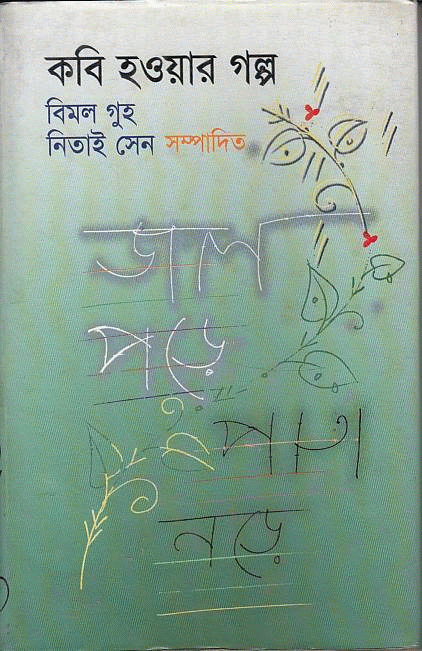 কবি হওয়ার গল্প
বিমল গুহ
নিতাই সেন সম্পাদিত
জল
পড়ে
পাতা
নড়ে